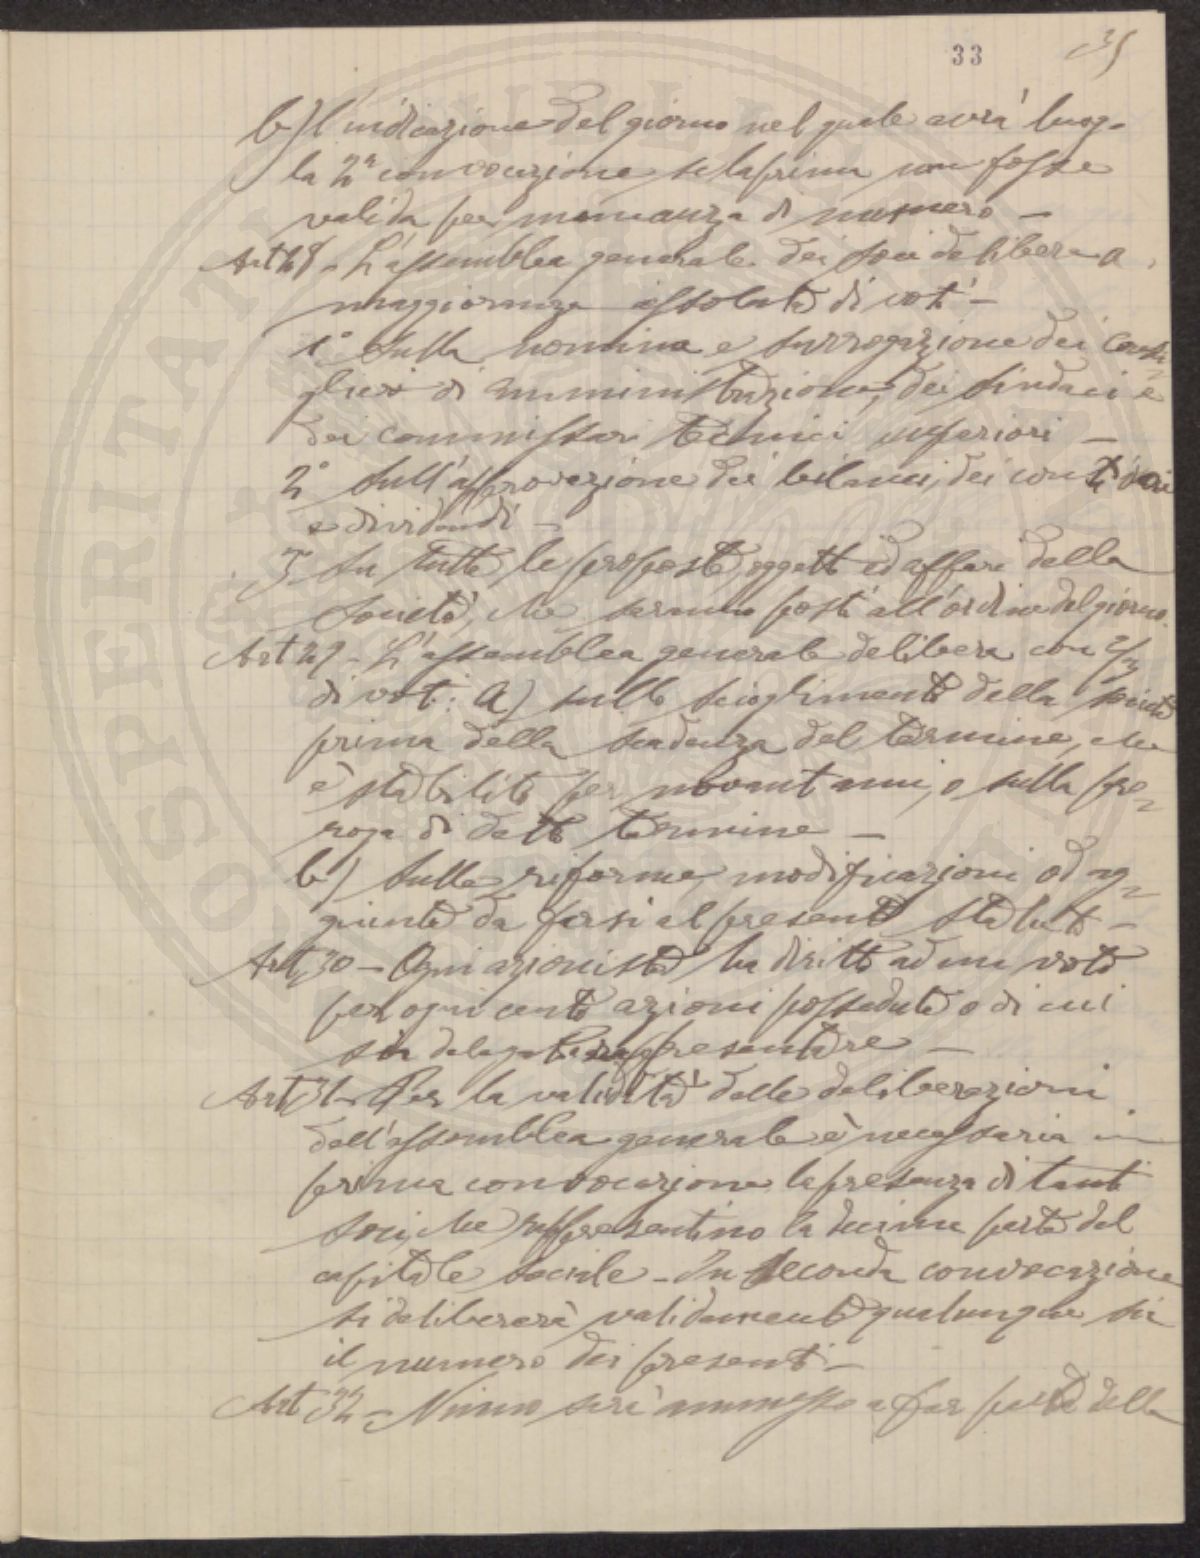 33 35
b) l'indicazione del giorno nel quale avrà luogo
la 2ª convocazione se la prima non fosse
valida per mancanza di numero —
Art 28 - L'assemblea generale dei soci delibera a
maggioranza assoluta di voti —
1° Sulla nomina e surrogazione dei Consi
glieri di amministrazione, dei sindaci e
dei commissari tecnici
2° Sull'approvazione dei bilanci, dei conti
e dividendi —
3° Su tutte le proposte, oggetti ed affari della
Società, che saranno posti all'ordine del giorno.
Art 29 - L'assemblea generale delibera con 2/3
di voti: a) sullo scioglimento della società
prima della scadenza del termine, che
è stabilito per novant'anni, o sulla pro=
roga di detto termine —
b) Sulle riforme, modificazioni od ag=
giunte da farsi al presente statuto —
Art 30 - Ogni azionista ha diritto ad un voto
per ogni cento azioni possedute o di cui
sia delegato a rappresentare —
Art 31 - Per la validità delle deliberazioni
dell'assemblea generale è necessaria in
prima convocazione la presenza di tanti
soci, che rappresentino la decima parte del
capitale sociale - In seconda convocazione
si delibererà validamente qualunque sia
il numero dei presenti —
Art 32 - Niuno sarà ammesso a far parte della
SOSPERITATI
VELI